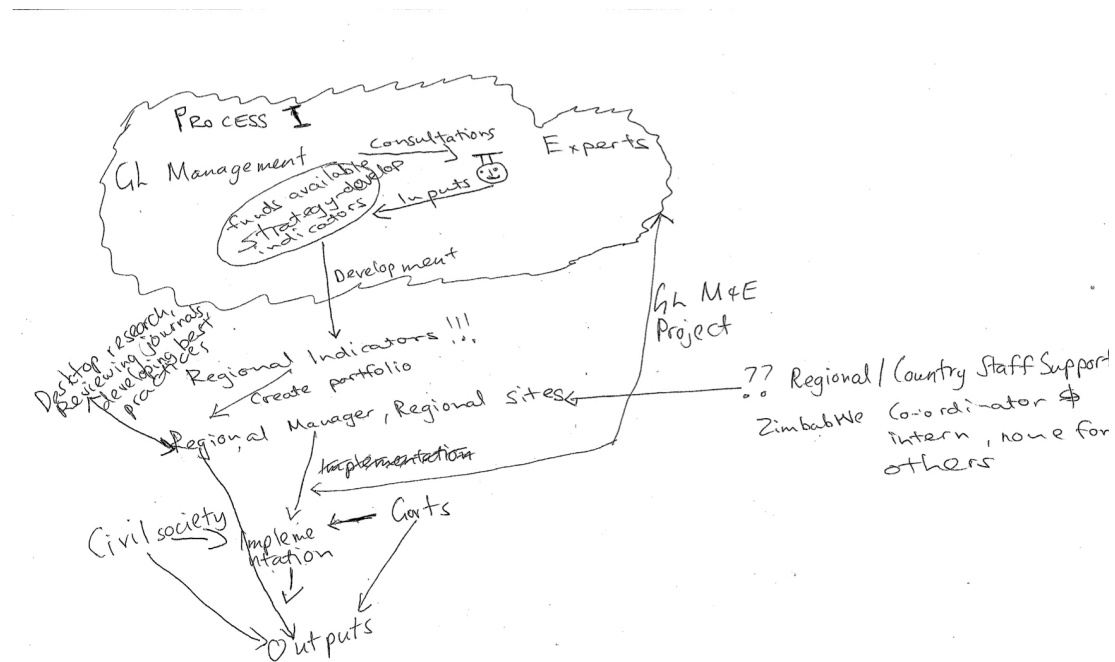 PROCESS I
Consultations
Experts
GL Management
Inputs
funds available
strategy-develop
indicators
Development
GL M&E
Project
Desktop research,
Reviewing journals,
developing best
practices
Regional Indicators !!!
Create portfolio
Regional Manager, Regional sites
?? Regional/Country Staff Support
Zimbabwe Co-ordinator &
intern, none for
others
Implementation
Civil society
Govts
Impleme
ntation
Outputs